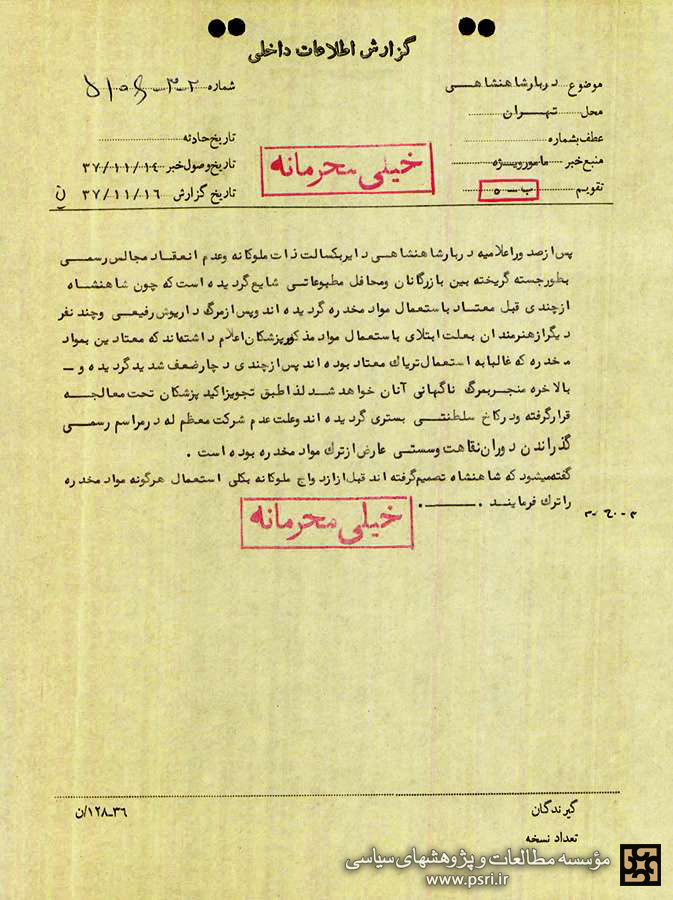 گزارش اطلاعات داخلی
موضوع دربار شاهنشاهی
محل تهران
عطف بشماره
منبع خبر مامور ویژه
تقویم ب ـ ۵
شماره
تاریخ حادثه
تاریخ وصول خبر ۳۷/۱۱/۱۴
تاریخ گزارش ۳۷/۱۱/۱۶
خیلی محرمانه
پس از صدور اعلامیه دربار شاهنشاهی دایر بکسالت ذات ملوکانه وعدم انعقاد مجالس رسمی
بطور جسته گریخته بین بازرگانان ومحافل مطبوعاتی شایع گردیده است که چون شاهنشاه
از چندی قبل معتاد باستعمال مواد مخدره گردیده اند وپس از مرگ داریوش رفیعی وچند نفر
دیگر از هنرمندان بعلت ابتلای باستعمال مواد مذکور پزشکان اعلام داشته‌اند که معتادین بمواد
مخدره که غالبا به استعمال تریاک معتاد بوده اند پس از چندی دچار ضعف شدید گردیده و ـ
بالاخره منجر بمرگ ناگهانی آنان خواهد شد لذا طبق تجویز اکید پزشکان تحت معالجه
قرار گرفته ودر کاخ سلطنتی بستری گردیده اند وعلت عدم شرکت معظم له در مراسم رسمی
گذراندن دوران نقاهت وسستی عارض از ترک مواد مخدره بوده است .
گفته میشود که شاهنشاه تصمیم گرفته اند قبل از ازدواج ملوکانه بکلی استعمال هرگونه مواد مخدره
را ترک فرمایند .ــــــ.
خیلی محرمانه
گیرندگان
تعداد نسخه
۳۶ـ۱۲۸/ن
مؤسسه مطالعات و پژوهشهای سیاسی
www.psri.ir